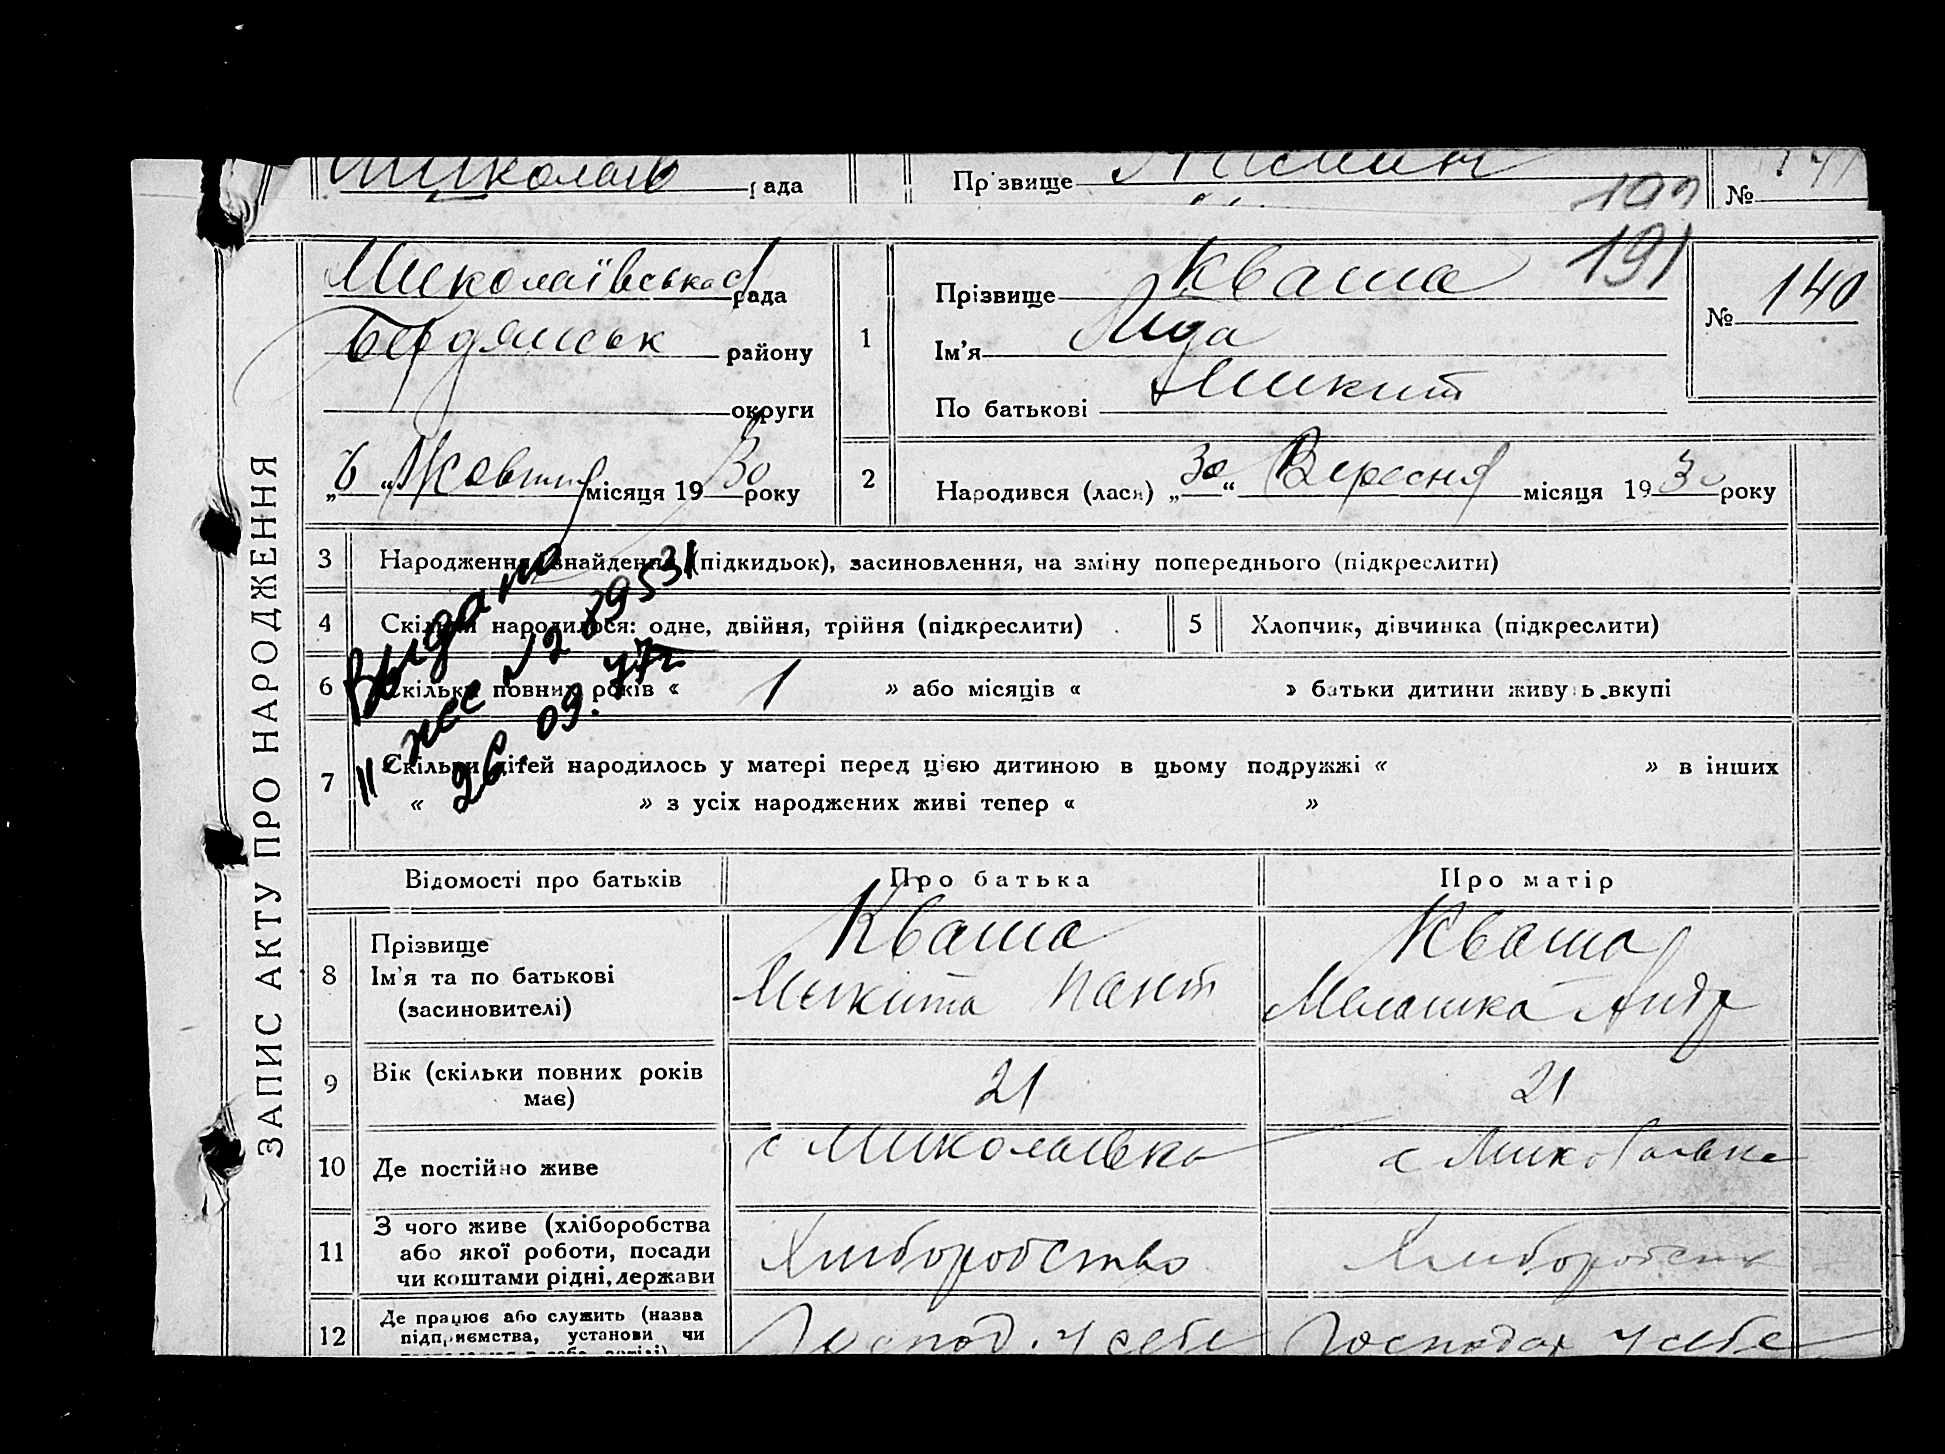 рада
Прізвище
№
Миколаївська рада
Бердянськ району
округи
„6“ Жовтня місяця 1930 року
1
Прізвище Кваша
Ім’я Лида
По батькові Микит
191
№ 140
2
Народився (лася) „30“ Вересня місяця 1930 року
ЗАПИС АКТУ ПРО НАРОДЖЕННЯ
3 Народження, знайдення (підкидьок), засиновлення, на зміну попереднього (підкреслити)
4 Скільки народилося: одне, двійня, трійня (підкреслити)
5 Хлопчик, дівчинка (підкреслити)
6 Скільки повних років « 1 » або місяців « » батьки дитини живуть вкупі
7 Скільки дітей народилось у матері перед цією дитиною в цьому подружжі « » в інших
« » з усіх народжених живі тепер « »
Выдано
26.09.77г
Відомості про батьків
Про батька
Про матір
8
Прізвище
Ім’я та по батькові
(засиновителі)
Кваша
Микита Пант
Кваша
Мелашка Андр
9
Вік (скільки повних років
має)
21
21
10 Де постійно живе
с Миколаївка
с Миколаївка
11
З чого живе (хліборобства
або якої роботи, посади
чи коштами рідні, держави
Хліборобство
Хліборобств
12
Де працює або служить (назва
підприємства, установи чи
Господ. у себе
Господар у себе